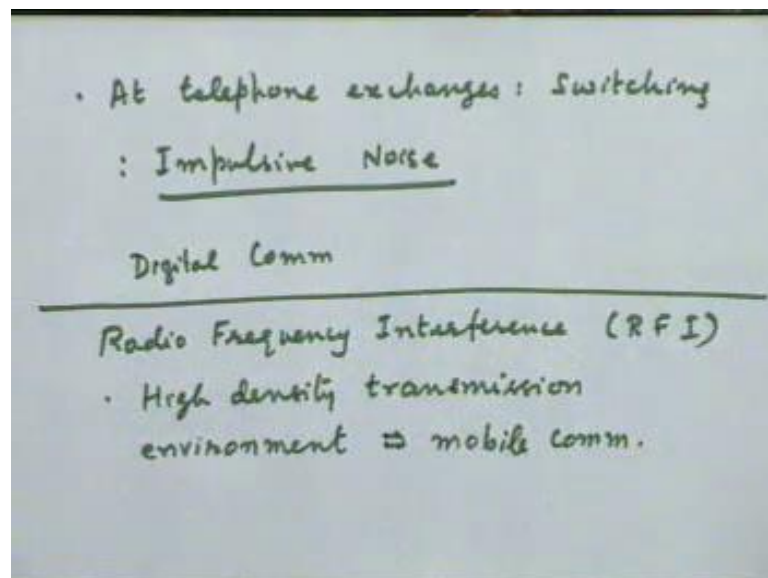 · At telephone exchanges : Switching
: Impulsive Noise
Digital Comm
Radio Frequency Interference (RFI)
· High density transmission
environment ⇒ mobile comm.